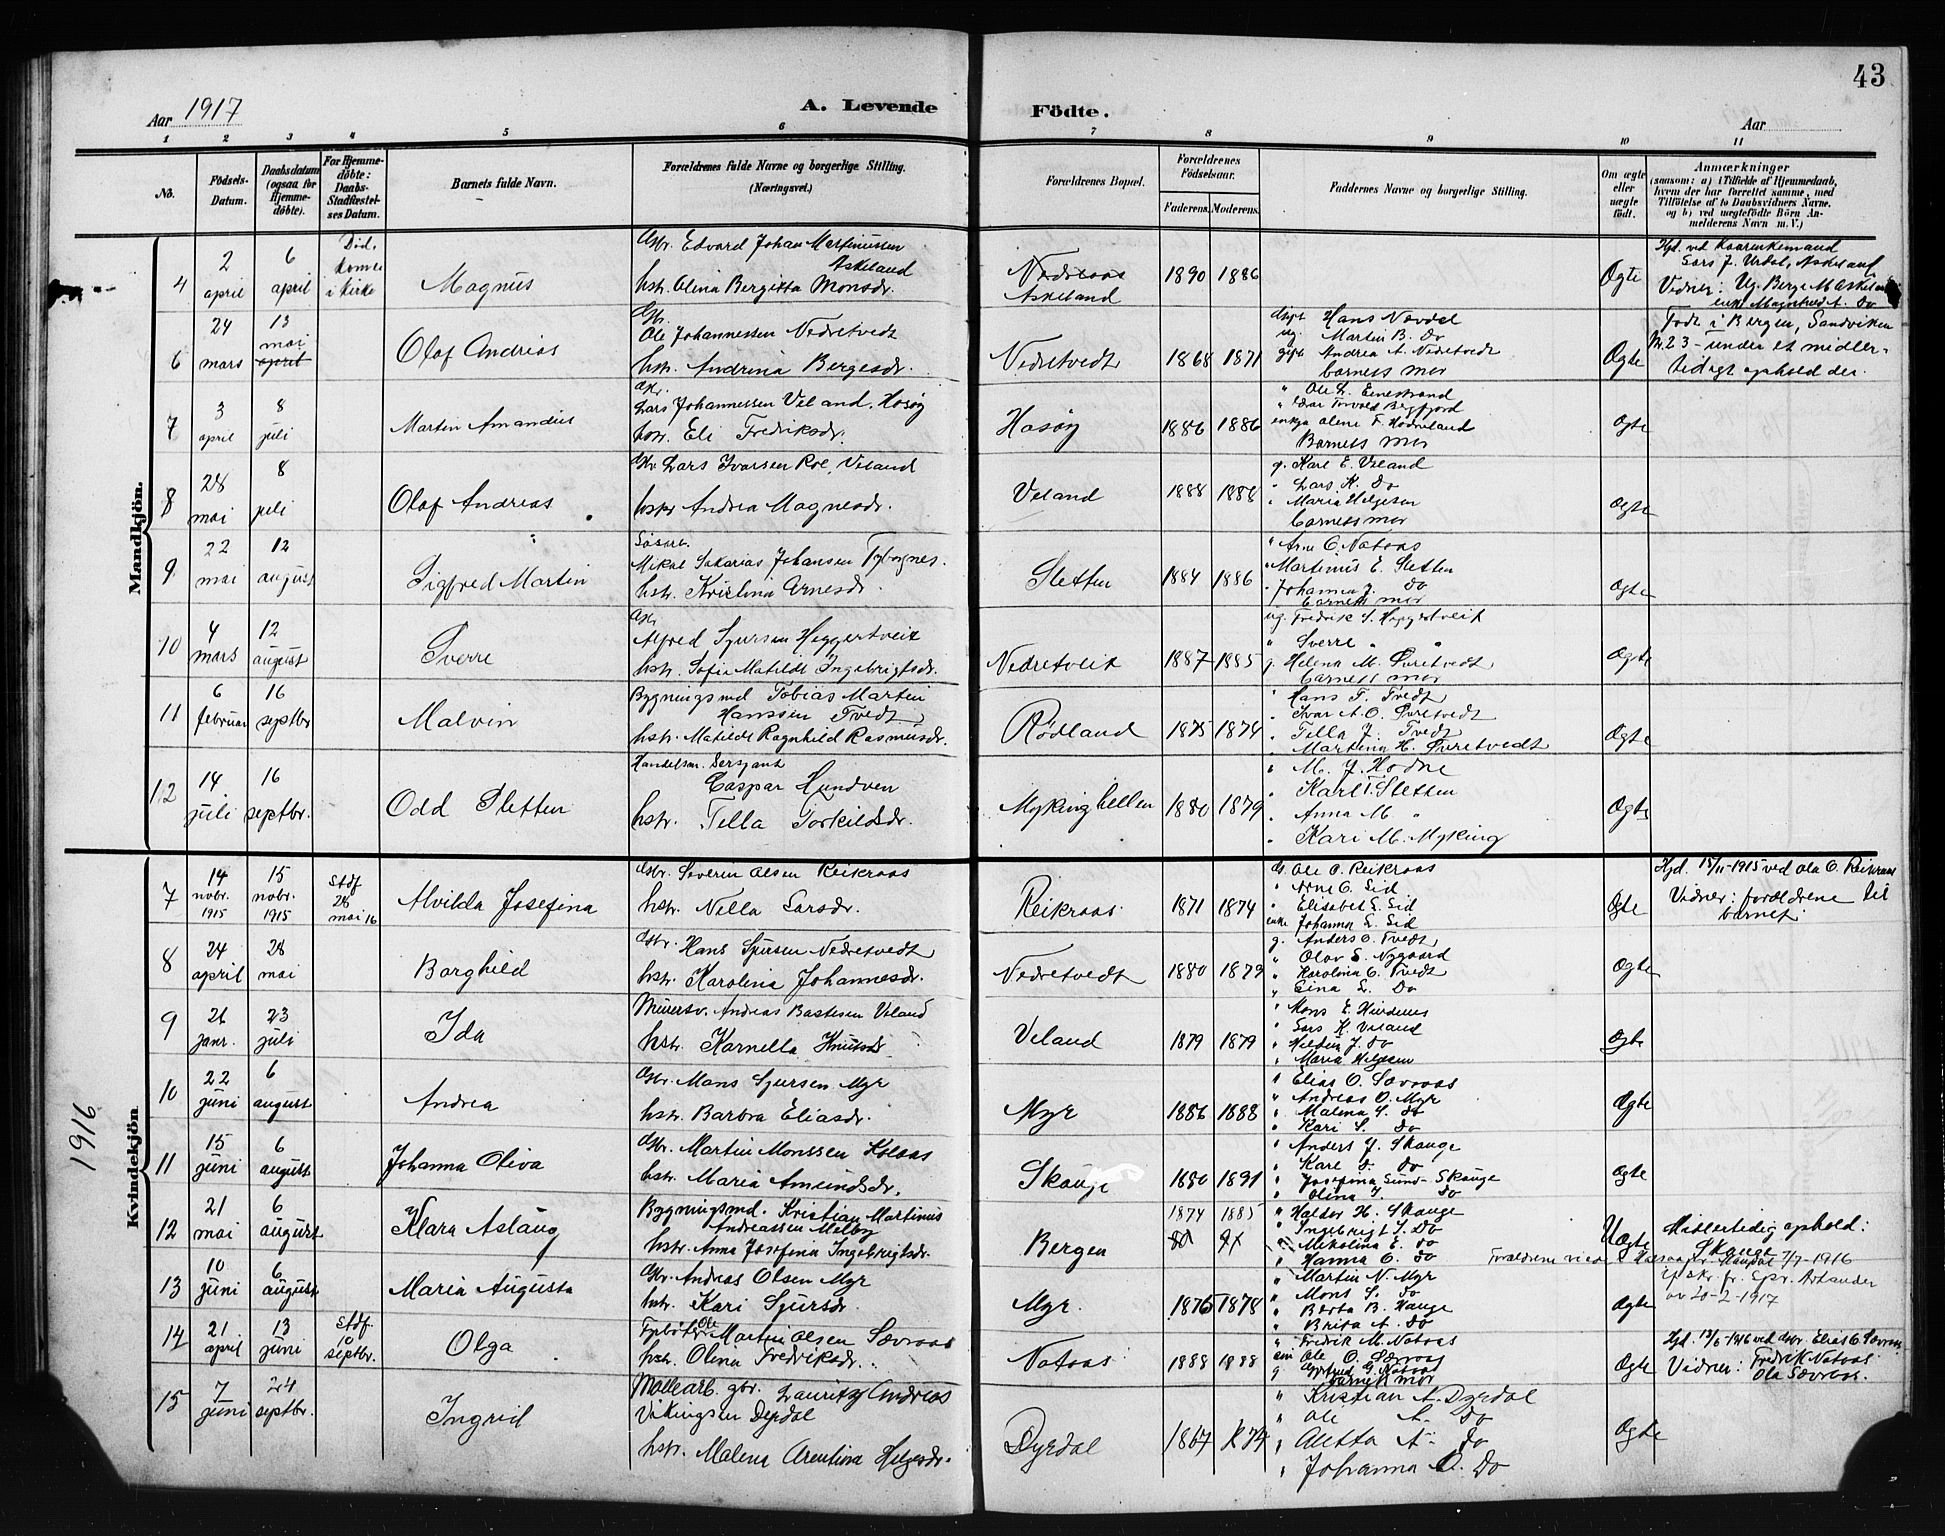 43
Aar 1917
A. Levende Födte.
Aar
1 2 3 4 5 6 7 8 9 10 11
No.
Födsels-
Datum.
Daabsdatum
(ogsaa for
Hjemme-
döbte).
For Hjemme-
döbte:
Daabs-
Stadfæstel-
ses Datum.
Barnets fulde Navn.
Forældrenes fulde Navne og borgerlige Stilling.
(Næringsvei.)
Forældrenes Bopæl.
Forældrenes
Födselsaar.
Faderens. Moderens.
Faddernes Navne og borgerlige Stilling.
Om ægte
eller
uægte
födt.
Anmærkninger
(saasom: a) i Tilfælde af Hjemmedaab,
hvem der har forrettet samme, med
Tilföielse af to Daabsvidners Navne.
og b) ved uægtefödte Börn An-
melderens Navn m. V.)
Mandkjön.
4
2
april
6
april
i kirke
Magnus
Gbr. Edvard Johan Martinussen
Askeland
hstr. Olina Bergitta Monsdr.
Nedreaas
Askeland
1890 1886
Ægte
Lars J. Urdal, Askeland
Vidner:
6
24
mars
13
mai
april
Olaf Andrias
Gbr.
Ole Johannessen Nedretvedt
hstr. Andrina Bergesdr.
Nedretvedt
1868 1871
Hans Nævdal
ug. Martin B. Do
gift Andrea A. Nedretvedt
barnets mor
Ægte
Födt i Bergen, Sandviken
Nr. 23 - under et midler-
tidigt ophold der.
7
3
april
8
juli
Martin Amandus
Gbr.
Lars Johannessen Veland, Hosöy
hstr. Eli Fredriksdr.
Hosöy
1886 1886
" Ole L. Einestrand
enkja Olene F. Hodneland
Barnets mor
Ægte
8
28
mai
8
juli
Olaf Andreas
Gbr. Lars Ivarsen Roe, Veland
hstr Andrea Magnesdr.
Veland
1888 1888
g. Karl E. Veland
" Lars K. Do
" Maria Helgesen
barnets mor
Ægte
9
22
mai
12
august
Sigfred Martin
Mikal Sakarias Johansen
hstr. Kristina Arnesdr.
Sletten
1884 1886
" Arne O. Nataas
" Martinus E. Sletten
" Johanna J. Do
barnets mor
Ægte
10
4
mars
12
august
Sverre
Gbr.
Alfred Sjursen Heggertveit
hstr. Sofie Matilde Ingebrigtsdr.
Nedretveit
1887 1885
ug. Fredrik S. Heggertveit
" Sverre " "
g. Helena M. Övretvedt
barnets mor
Ægte
11
6
februar
16
septbr
Malvin
Bygningsmd Tobias Martin
Hanssen Tvedt
hstr. Matilde Ragnhild Rasmusdr.
Rödland
1875 1874
" Hans T. Tvedt
" Ivar A. O. Övretvedt
" Tella J. Tvedt
" Martina H. Övretvedt
Ægte
12
14
juli
16
septbr.
Odd Sletten
Handelsm. Sersjant
Caspar Hundven
hstr. Tella Torkildsdr.
Mykinghellen
1880 1879
" M. J. Hodne
" Karl T. Sletten
" Anna M. "
" Kari M. Myking
Ægte
Kvindekjön
1916
7
14
nobr.
1915
15
nobr.
1915
Stdf
28
mai 16
Alvilda Josefina
Gbr. Severin Olsen Reikraas
hstr. Nella Larsdr.
Reikraas
1871 1874
g. Ole O. Reikraas
" Arne O. Lid
" Elisabet L. Lid
enke Johanna L. Lid
Ægte
Hjd. 15/11-1915 ved Ola O. Reikraas
Vidner: forældrene til
barnet
8
24
april
28
mai
Borghild
Gbr. Hans Sjursen Nedretvedt
hstr. Karolina Johannesdr.
Nedretvedt
1880 1879
g. Anders O. Tvedt
" Olav S. Nygaard
" Karolina O. Tvedt
" Eina L. Do
Ægte
9
26
janr.
23
juli
Ida
Murersv. Andreas Bastesen Veland
hstr. Karnella Knutsdr
Veland
1879 1879
" Mons E. Hindenes
" Lars K. Veland
" Maria Helgesen
Ægte
10
22
juni
6
august
Andrea
Gbr. Mons Sjursen Myr
hstr. Barbra Eliasdr.
Myr
1886 1888
" Elias O. Sævraas
" Andreas O. Myr
" Malena S. Do
" Kari S. Do
Ægte
11
15
juni
6
august
Johanna Oliva
Gbr. Martin Monssen Kolaas
hstr. Maria Amundsdr.
Skauge
1880 1891
" Anders J. Skauge
" Karl A. Do
" Josefina Sund- Skauge
" Olina J. Do
Ægte
12
21
mai
6
august
Klara Aslaug
Bygningsmd. Kristian Martinus
Andreassen Melby
hstr. Anna Josefina Ingebrigtsdr.
Bergen
1874 1885
" Haldor H. Skauge
" Ingebrigt J. Do
" Mikolina E. Do
" Hanna O. Do
Uægte
Midlertidig ophold:
Skauge
7/7-1916
20-2-1917
13
10
juni
6
august
Maria Augusta
Gbr. Andreas Olsen Myr
hstr. Kari Sjursdr.
Myr.
1876 1878
" Martin N. Myr
" Mons S. Do
" Berta B. Hauge
" Brita A. Do
Ægte
14
21
april
13
juni
Stdf.
10
septbr.
Olga
Ole
Martin Olsen Sævraas
hstr. Olina Fredriksdr.
Nataas
1888 1888
" Fredrik M. Nataas
Ole O. Sævraas
g. Gjertrud G. Nataas
barnets mor
Ægte
Hjd. 13/6-1916 ved Gbr. Elias O Sævraas
Vidner: Fredrik Nataas
Ola Sævraas.
15
7
juni
24
septbr.
Ingrid
Möllearb. gbr. Lauritz Andreas
Vikingsen Dyrdal
hstr. Malena Arentina Helgesdr.
Dyrdal
1867 1874
" Kristian A. Dyrdal
" Ole A. Do
" Aletta A. Do
" Johanna O. Do
Ægte